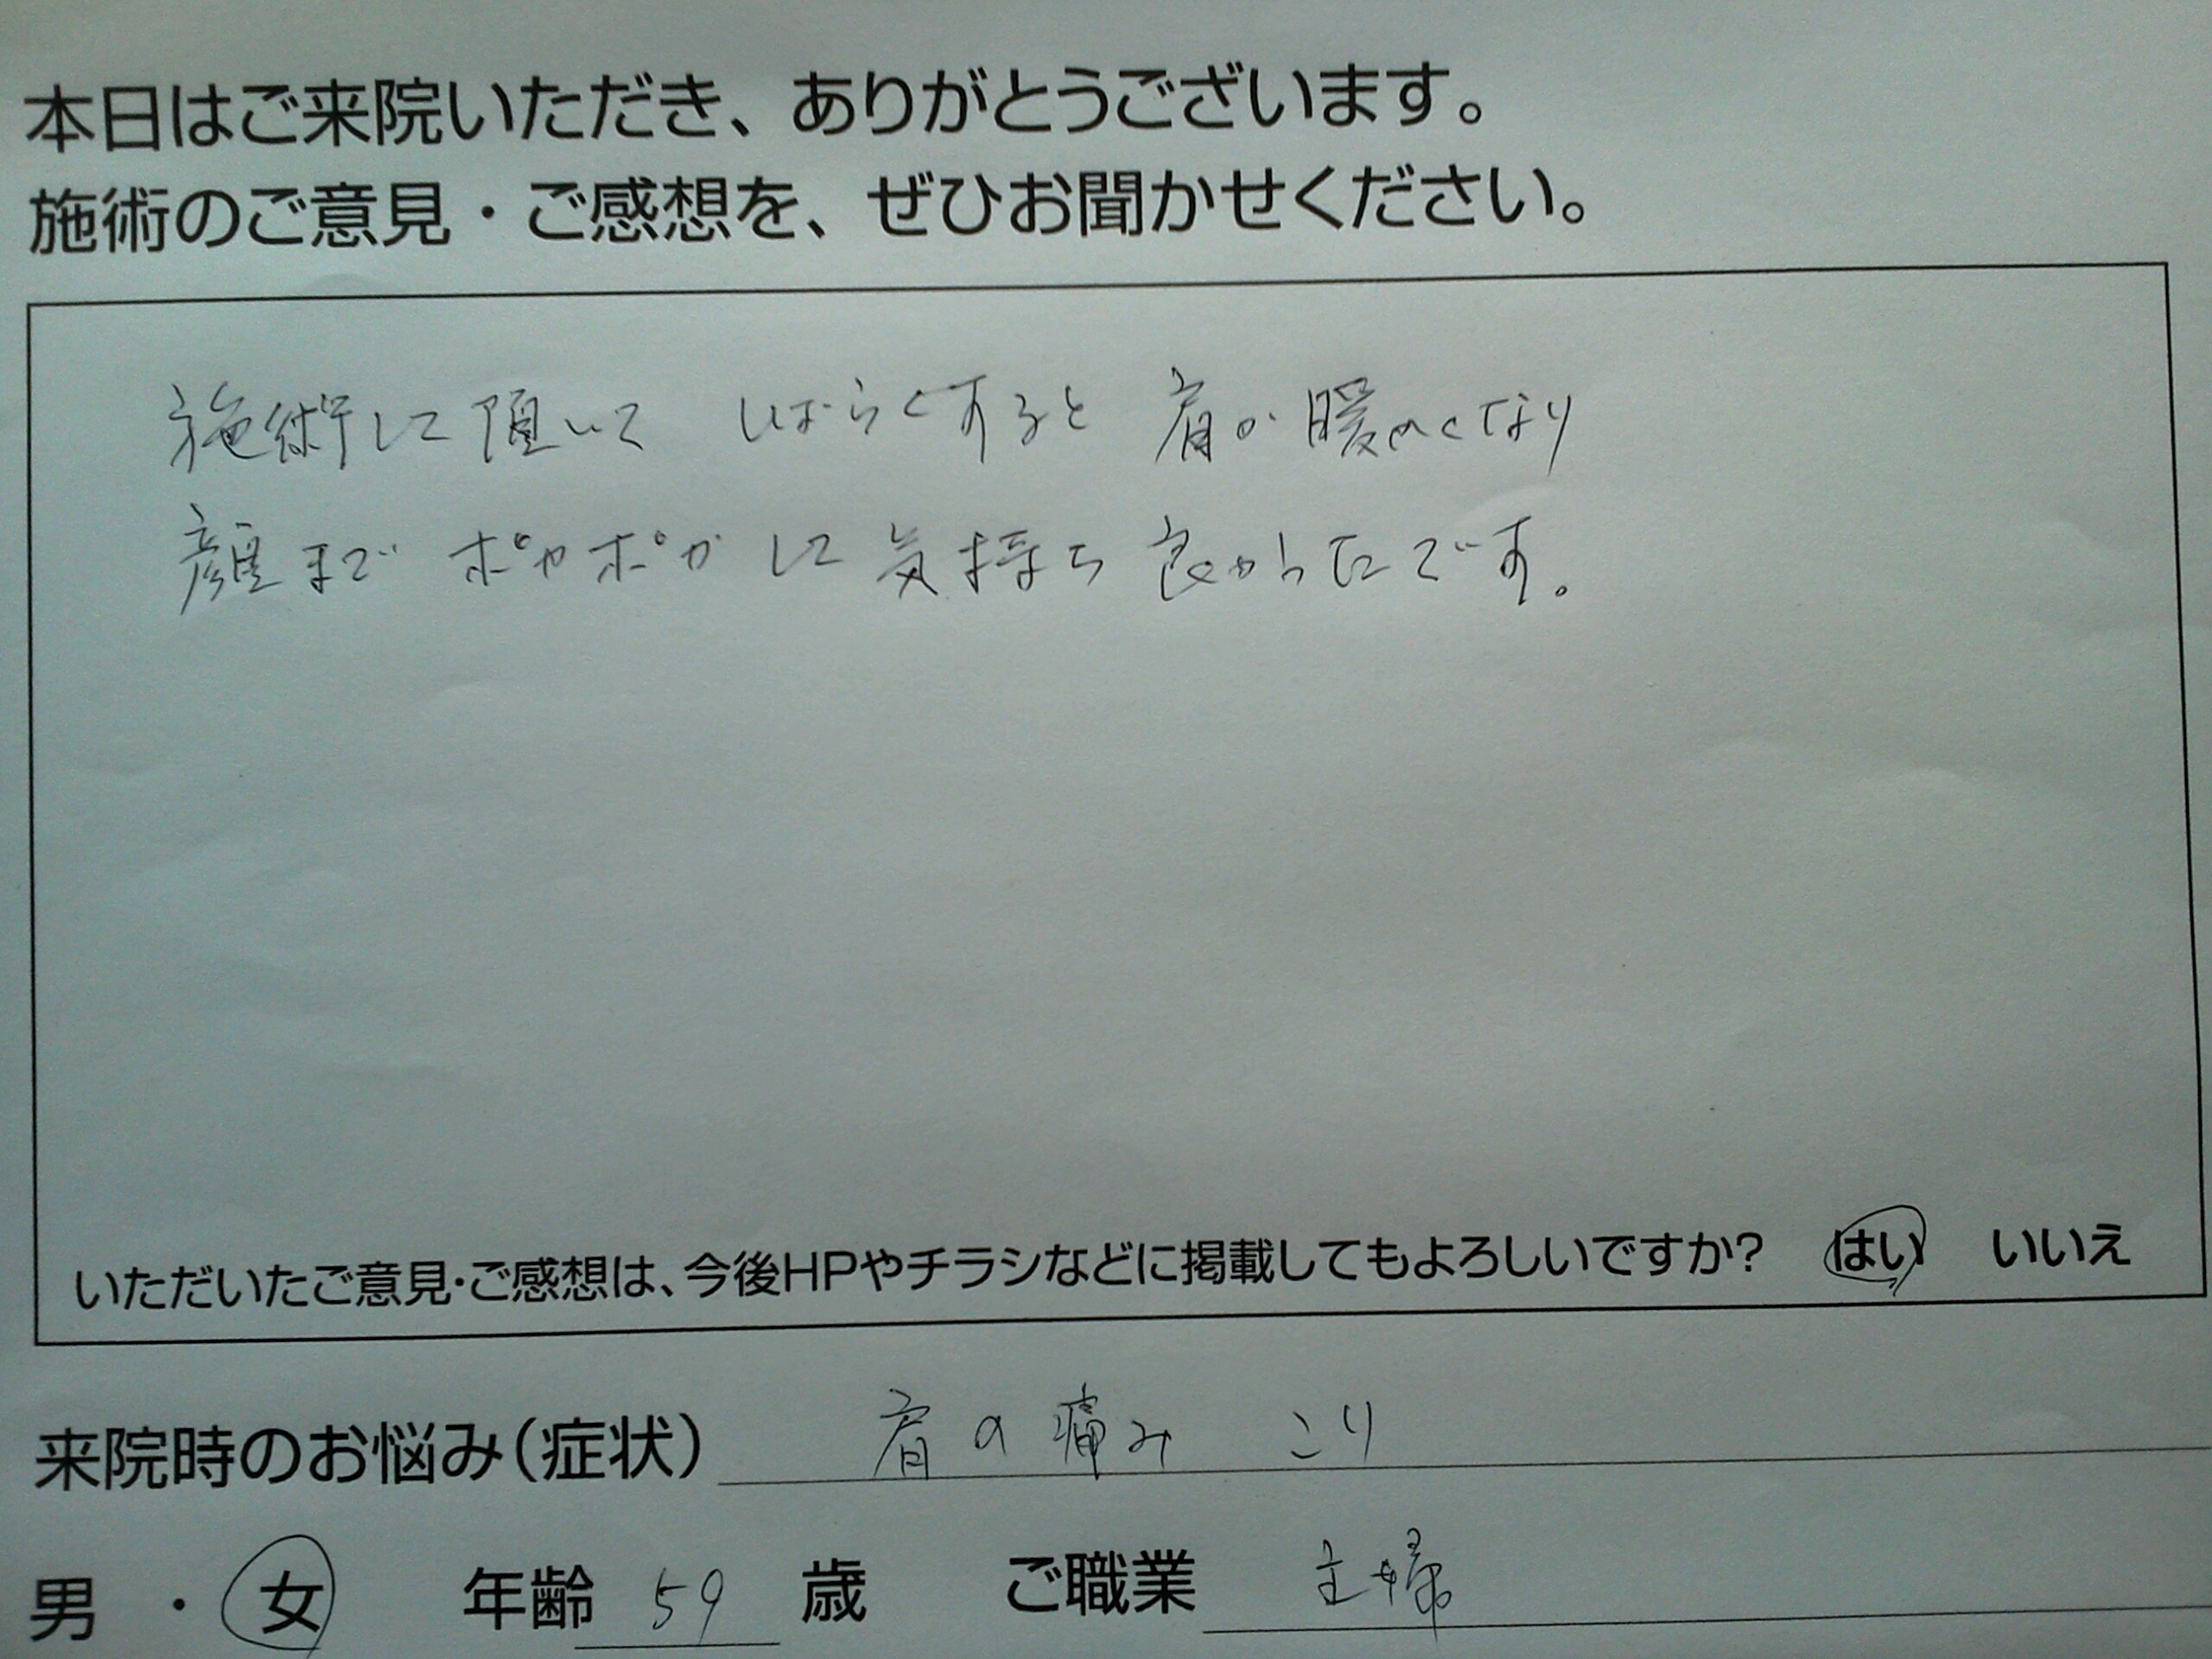 本日はご来院いただき、ありがとうございます。
施術のご意見・ご感想を、ぜひお聞かせください。
施術して頂いて しばらくすると 肩が暖かくなり
顔まで ポカポカ して 気持ち 良かったです。
いただいたご意見・ご感想は、今後HPやチラシなどに掲載してもよろしいですか? はい いいえ
来院時のお悩み(症状) 肩の痛み こり
男 ・ 女 年齢 59 歳 ご職業 主婦